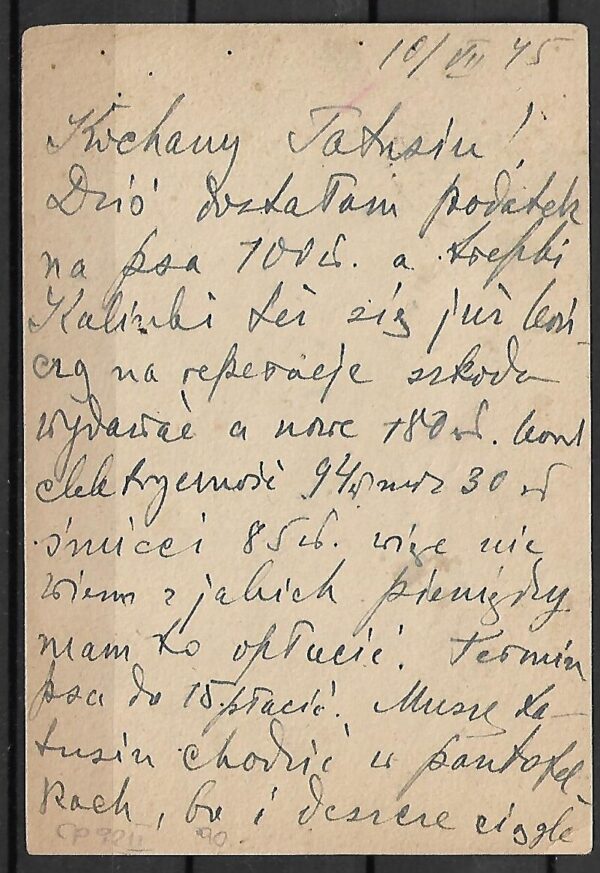 10/VII 45
Kochany Tatusiu!
Dziś dostałam podatek
na psa 100 zł. a trepki
Kalinki też się już koń-
czą na reperacje szkoda
wydawać a nowe 180 zł. kont
elektryczność 94 zł 30 zł
śmieci 85 zł. więc nie
wiem z jakich pieniędzy
mam to opłacić. Termin
psa do 15 płacić. Muszę Ta-
tusiu chodzić w pantofel-
kach, bo i deszcze ciągle
CP 90 II 90.